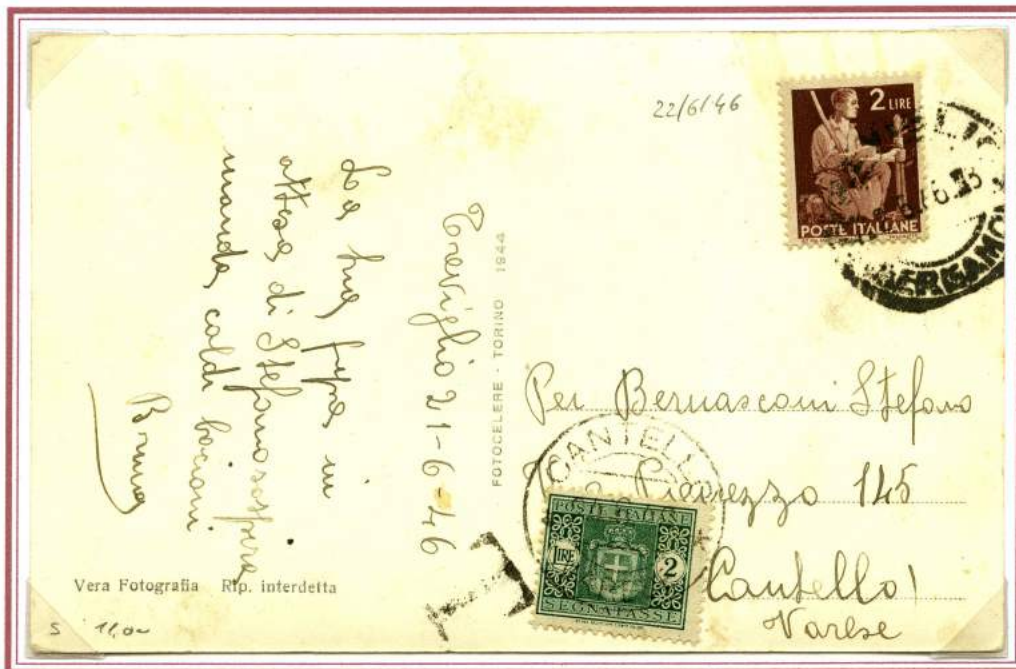 22/6/46
2 LIRE
POSTE ITALIANE
BERGAMO
Treviglio 21-6-46
La tua pupa in
attesa di Stefano sospira
manda caldi bacioni
Bruna
FOTOCELERE - TORINO 1944
Per Bernasconi Stefano
145
Cantello
Varese
CANTELLO
POSTE ITALIANE
LIRE 2
SEGNATASSE
T
Vera Fotografia Rip. interdetta
S 11,0